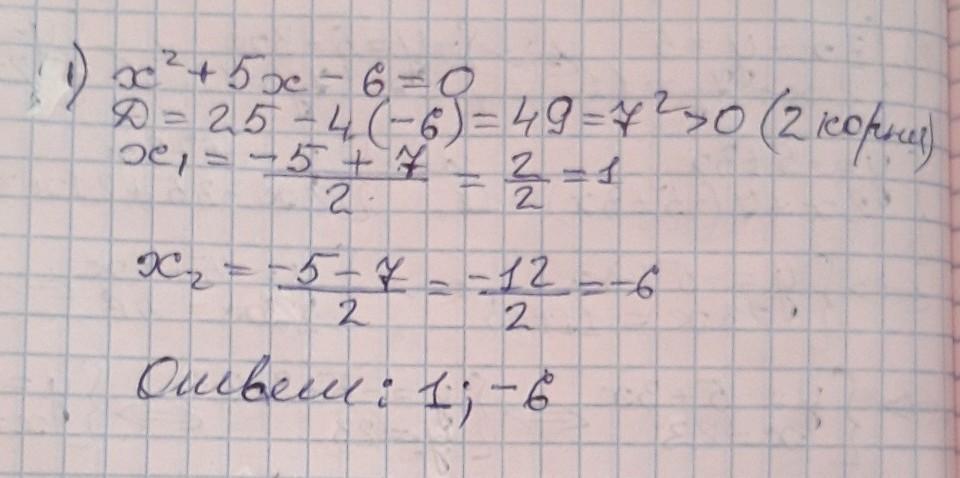 1) x² + 5x - 6 = 0
Д = 25 - 4(-6) = 49 = 7² > 0 (2 корня)
x₁ = (-5 + 7)/2 = 2/2 = 1
x₂ = (-5 - 7)/2 = -12/2 = -6
Ответ: 1; -6